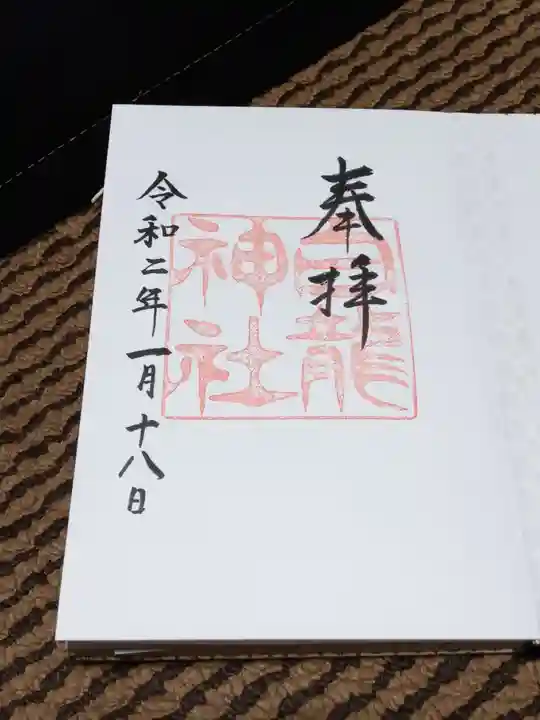 奉拝
神社
令和二年一月十八日